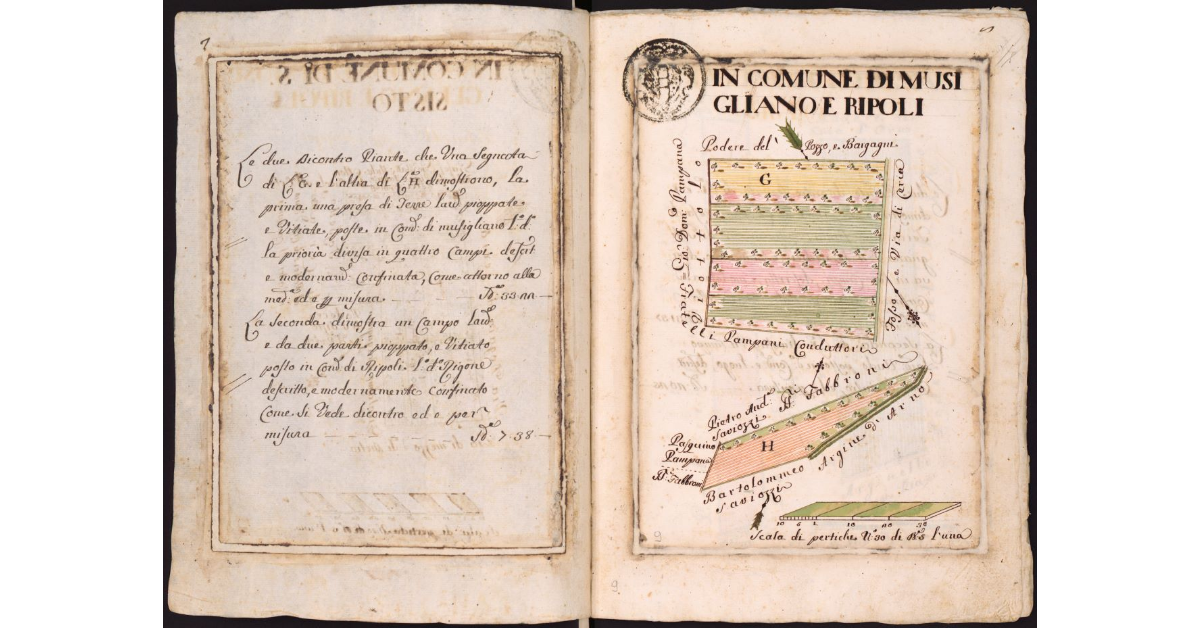 7
Le due dicontro Piante che Una Segnata
di L.ª G. e l'altra di L.ª H dimostrono, la
prima una presa di Terre lau.ᵉ pioppate
e Vitiate, poste in Com.ᵉ di musigliano l.º d.º
la prioria divisa in quattro Campi descrit
e modernam.ᵉ Confinata, Come attorno alla
med.ª ed e misura
La Seconda dimostra un Campo lau.º
e da due parti pioppato, e Vitiato
posto in Com.ᵉ di Ripoli l.º d.º Rigone
descritto, e modernamente confinato
Come Si Vede dicontro ed e per
misura 7-38
IN COMUNE DI MUSI
GLIANO E RIPOLI
Podere del Pozzo, e Bargagni
Gio: Dom: Pampana
G
Fosso e Via di Ceria
Fratelli Pampani Conduttori
Fabbroni
Pietro And.ª
Saviozzi
Pasquino
Pampana
Fabbroni
H
Argine di Arno
Bartolommeo
Saviozzi
10 5 1 10 20 30
Scala di pertiche N.º 30 di l'una